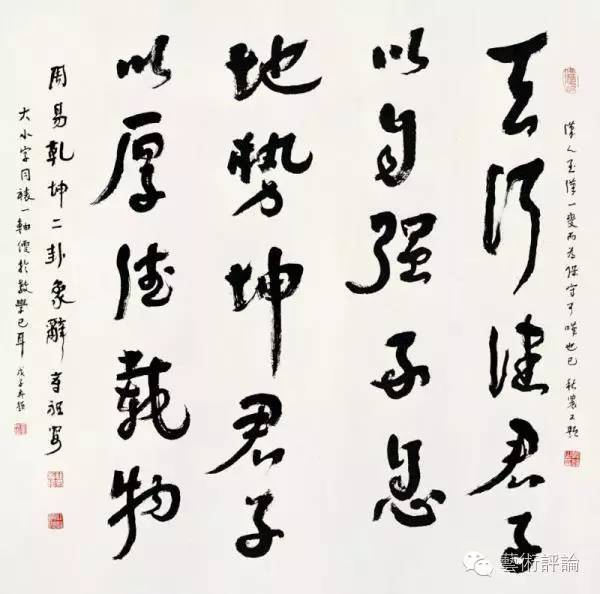 人至漢一變而為保守可嘆也已 又題
天行健君子
以自强不息
地勢坤君子
以厚德載物
周易乾坤二卦象辭 章祖安
大小字同裱一軸便於教學已耳 戊子再題
藝術評論